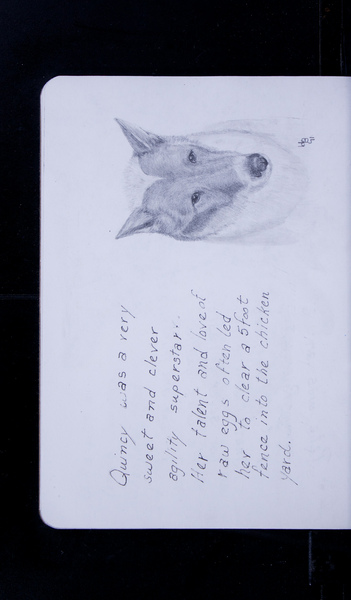 Quincy was a very
sweet and clever
agility superstar.
Her talent and love of
raw eggs often led
her to clear a 5 foot
fence into the chicken
yard.